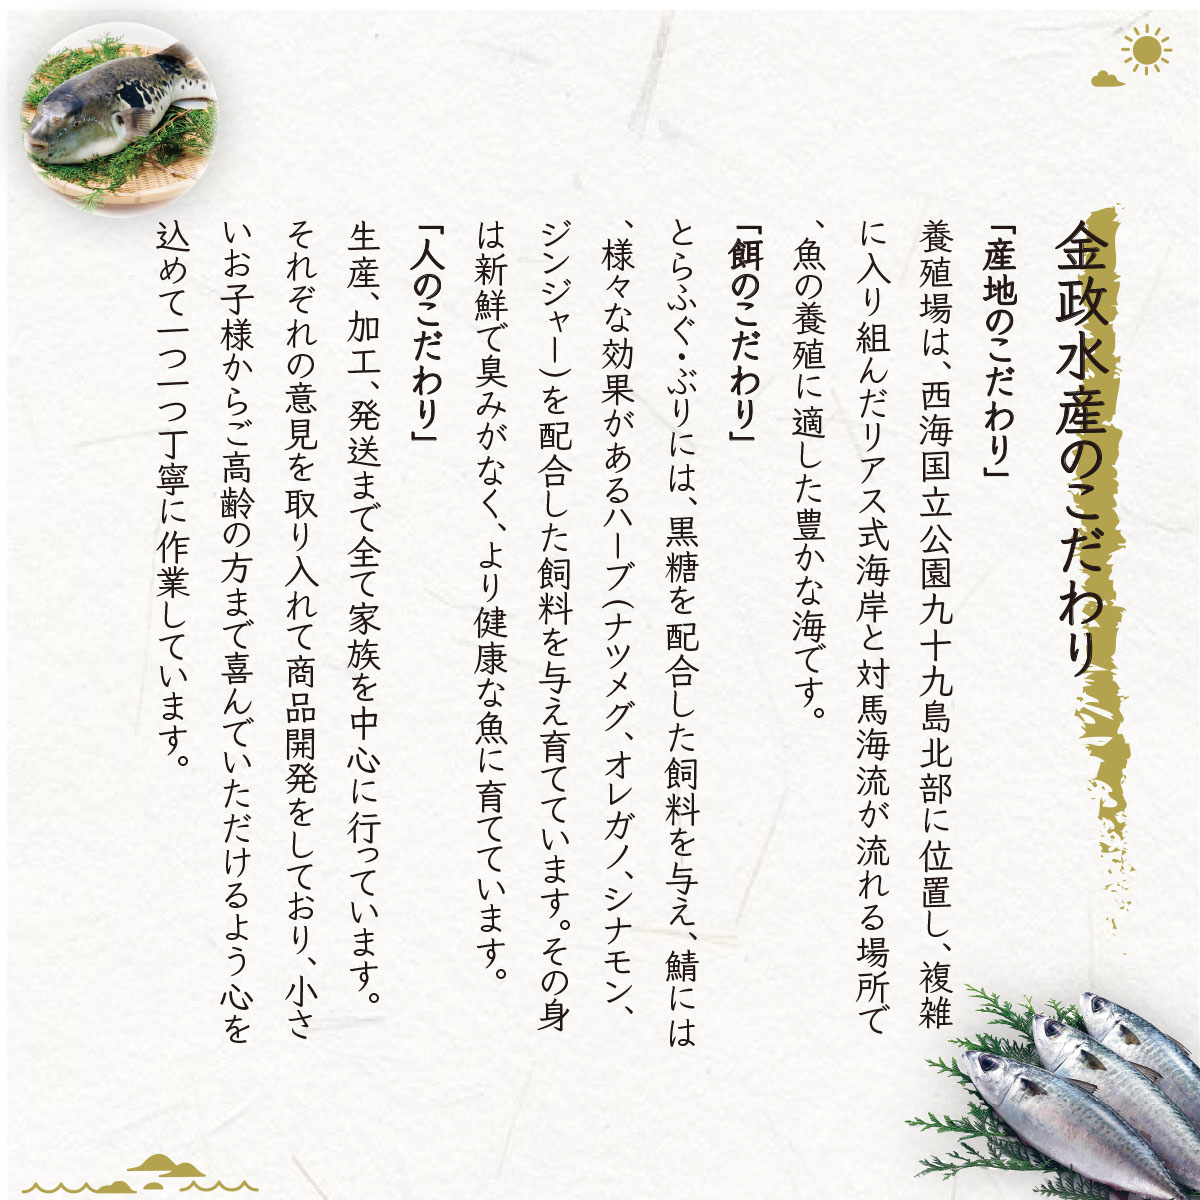 金政水産のこだわり
「産地のこだわり」
養殖場は、西海国立公園九十九島北部に位置し、複雑
に入り組んだリアス式海岸と対馬海流が流れる場所で
、魚の養殖に適した豊かな海です。
「餌のこだわり」
とらふぐ・ぶりには、黒糖を配合した飼料を与え、鯖には
、様々な効果があるハーブ(ナツメグ、オレガノ、シナモン、
ジンジャー)を配合した飼料を与え育てています。その身
は新鮮で臭みがなく、より健康な魚に育てています。
「人のこだわり」
生産、加工、発送まで全て家族を中心に行っています。
それぞれの意見を取り入れて商品開発をしており、小さ
いお子様からご高齢の方まで喜んでいただけるよう心を
込めて一つ一つ丁寧に作業しています。